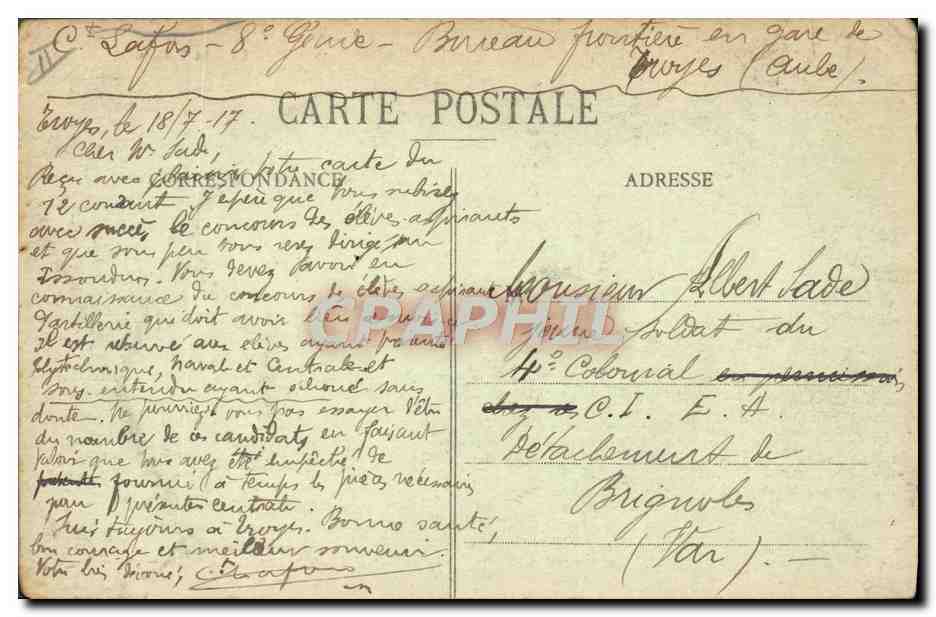 Ct Lafos - 8e Génie - Bureau frontière en gare de
Troyes (Aube).
CARTE POSTALE
Troyes, le 18/7-17.
Cher Mr Sade,
CORRESPONDANCE
Reçu avec plaisir votre carte du
12 courant. J'espère que vous subirez
avec succès, le concours des élèves-aspirants
et que sous peu vous serez dirigé sur
Issoudun. Vous devez savoir en
connaissance du concours de élèves aspirants
d'artillerie qui doit avoir lieu
Il est réservé aux élèves ayant
Polytechnique, Navale et Centrale et
sous-entendu ayant échoué sans
doute. Ne pourriez-vous pas essayer d'être
du nombre de ces candidats, en faisant
valoir que vous avez été empêché de
fournir à temps les pièces nécessaires
pour présenter centrale.
Suis toujours à Troyes. Bonne santé,
bon courage et meilleur souvenir.
Votre très dévoué, Ct Lafos
ADRESSE
Monsieur Albert Sade
jeune soldat du
4e Colonial en permission
chez C. I. E. A.
Détachement de
Brignoles
(Var). -
CPAPHIL